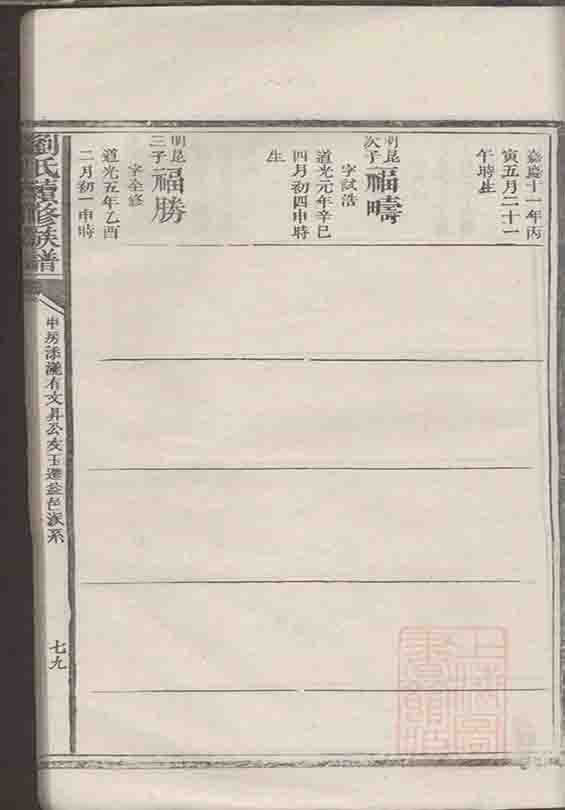 嘉慶十一年丙
寅五月二十一
午時生
明昆
次子
福疇
字試浩
道光元年辛巳
四月初四申時
生
明昆
三子
福勝
字全修
道光五年乙酉
二月初一申時
劉氏續修族譜
申房添瀧有文昇公友玉遷益邑派系
七九